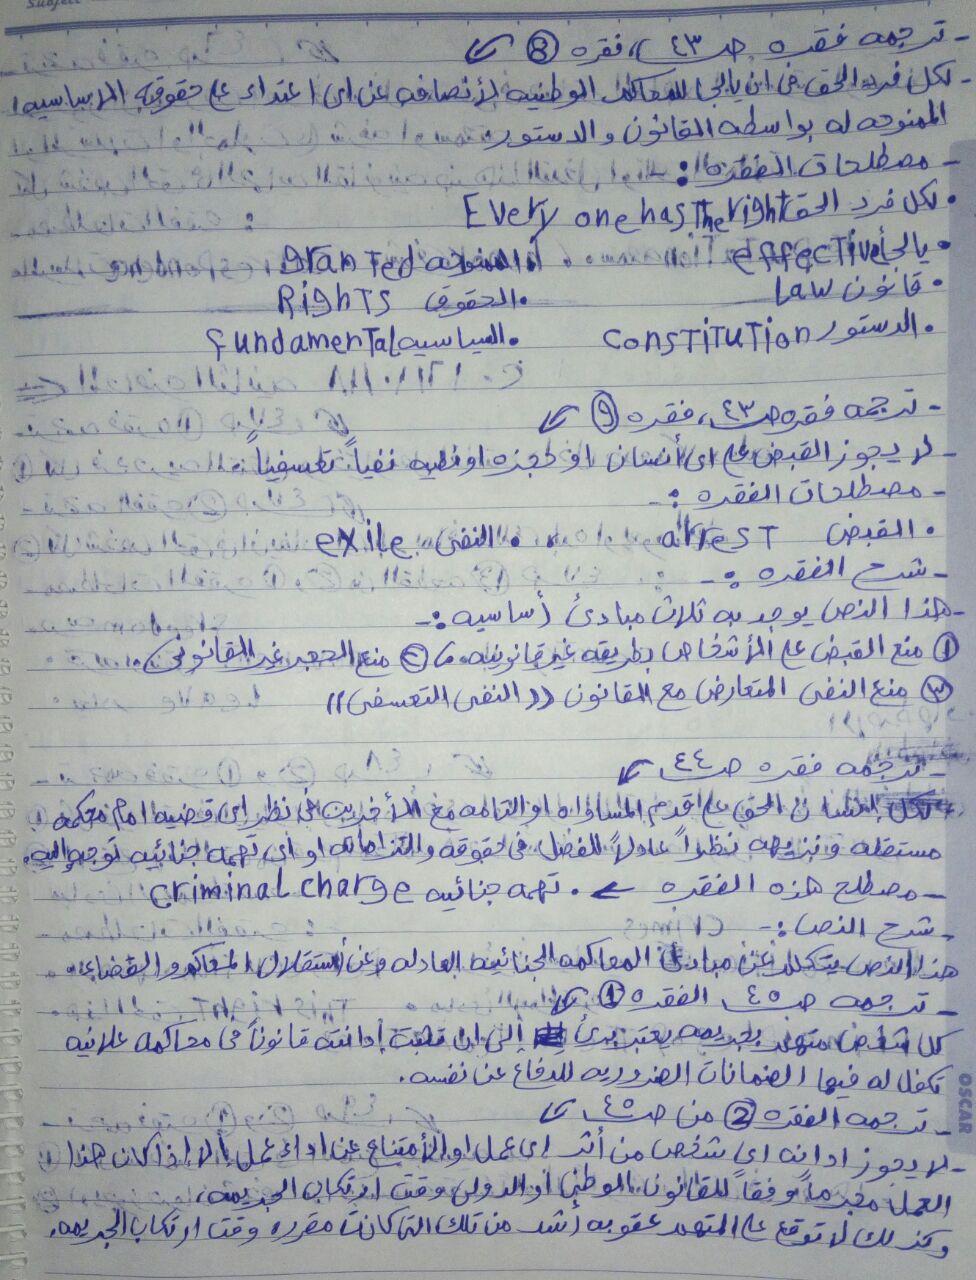 Subject
- ترجمه فقره ص ٤٣، فقره 8
- لكل فرد الحق فى ان يالجا للمحاكم الوطنيه لأنصافه عن اى اعتداء على حقوقه الاساسيه
الممنوحه له بواسطه القانون والدستور
- مصطلحات الفقره:
• لكل فرد الحق Every one has The right
• يالجأ effective • الممنوحه granted
• قانون Law • الحقوق Rights
• الدستور Constitution • السياسيه fundamental
- ترجمه فقره ص ٤٣، فقره 9
- لا يجوز القبض على اى أنسان او حجزه او نفيه نفياً تعسفياً
- مصطلحات الفقره :-
• القبض arrest • النفى exile
- شرح الفقره :-
- هذا النص يوجد به ثلاث مبادئ أساسيه :-
① منع القبض على الأشخاص بطريقه غير قانونيه. ② منع الحجز غير القانونى.
③ منع النفى المتعارض مع القانون ((النفى التعسفى))
- ترجمه فقره ص ٤٤
لكل انسان الحق على قدم المساواه التامه مع الأخرين فى نظر اى قضيه امام محكمه
مستقله ونزيهه نظراً عادلاً للفصل فى حقوقه والتزاماته او اى تهمه جنائيه توجه اليه.
- مصطلح هذه الفقره ← • تهمه جنائيه criminal charge
- شرح النص :- crimes
هذا النص يتكلم عن مبادئ المحاكمه الجنائيه العادله وعن أستقلال المحاكم والقضاء.
- ترجمه ص ٤٥ الفقره 1
كل شخص متهم بجريمه يعتبر برئ إلى ان تثبت إدانته قانوناً فى محاكمه علانيه
تكفل له فيها الضمانات الضروريه للدفاع عن نفسه.
- ترجمه الفقره 2 من ص ٤٥
- لا يجوز ادانه اى شخص من أثر اى عمل او الأمتناع عن اداء عمل إلا إذا كان هذا
العمل مجرماً وفقاً للقانون الوطنى او الدولى وقت ارتكاب الجريمه،
وكذلك لا توقع على المتهم عقوبه أشد من تلك التى كانت مقرره وقت ارتكاب الجريمه.
OSCAR